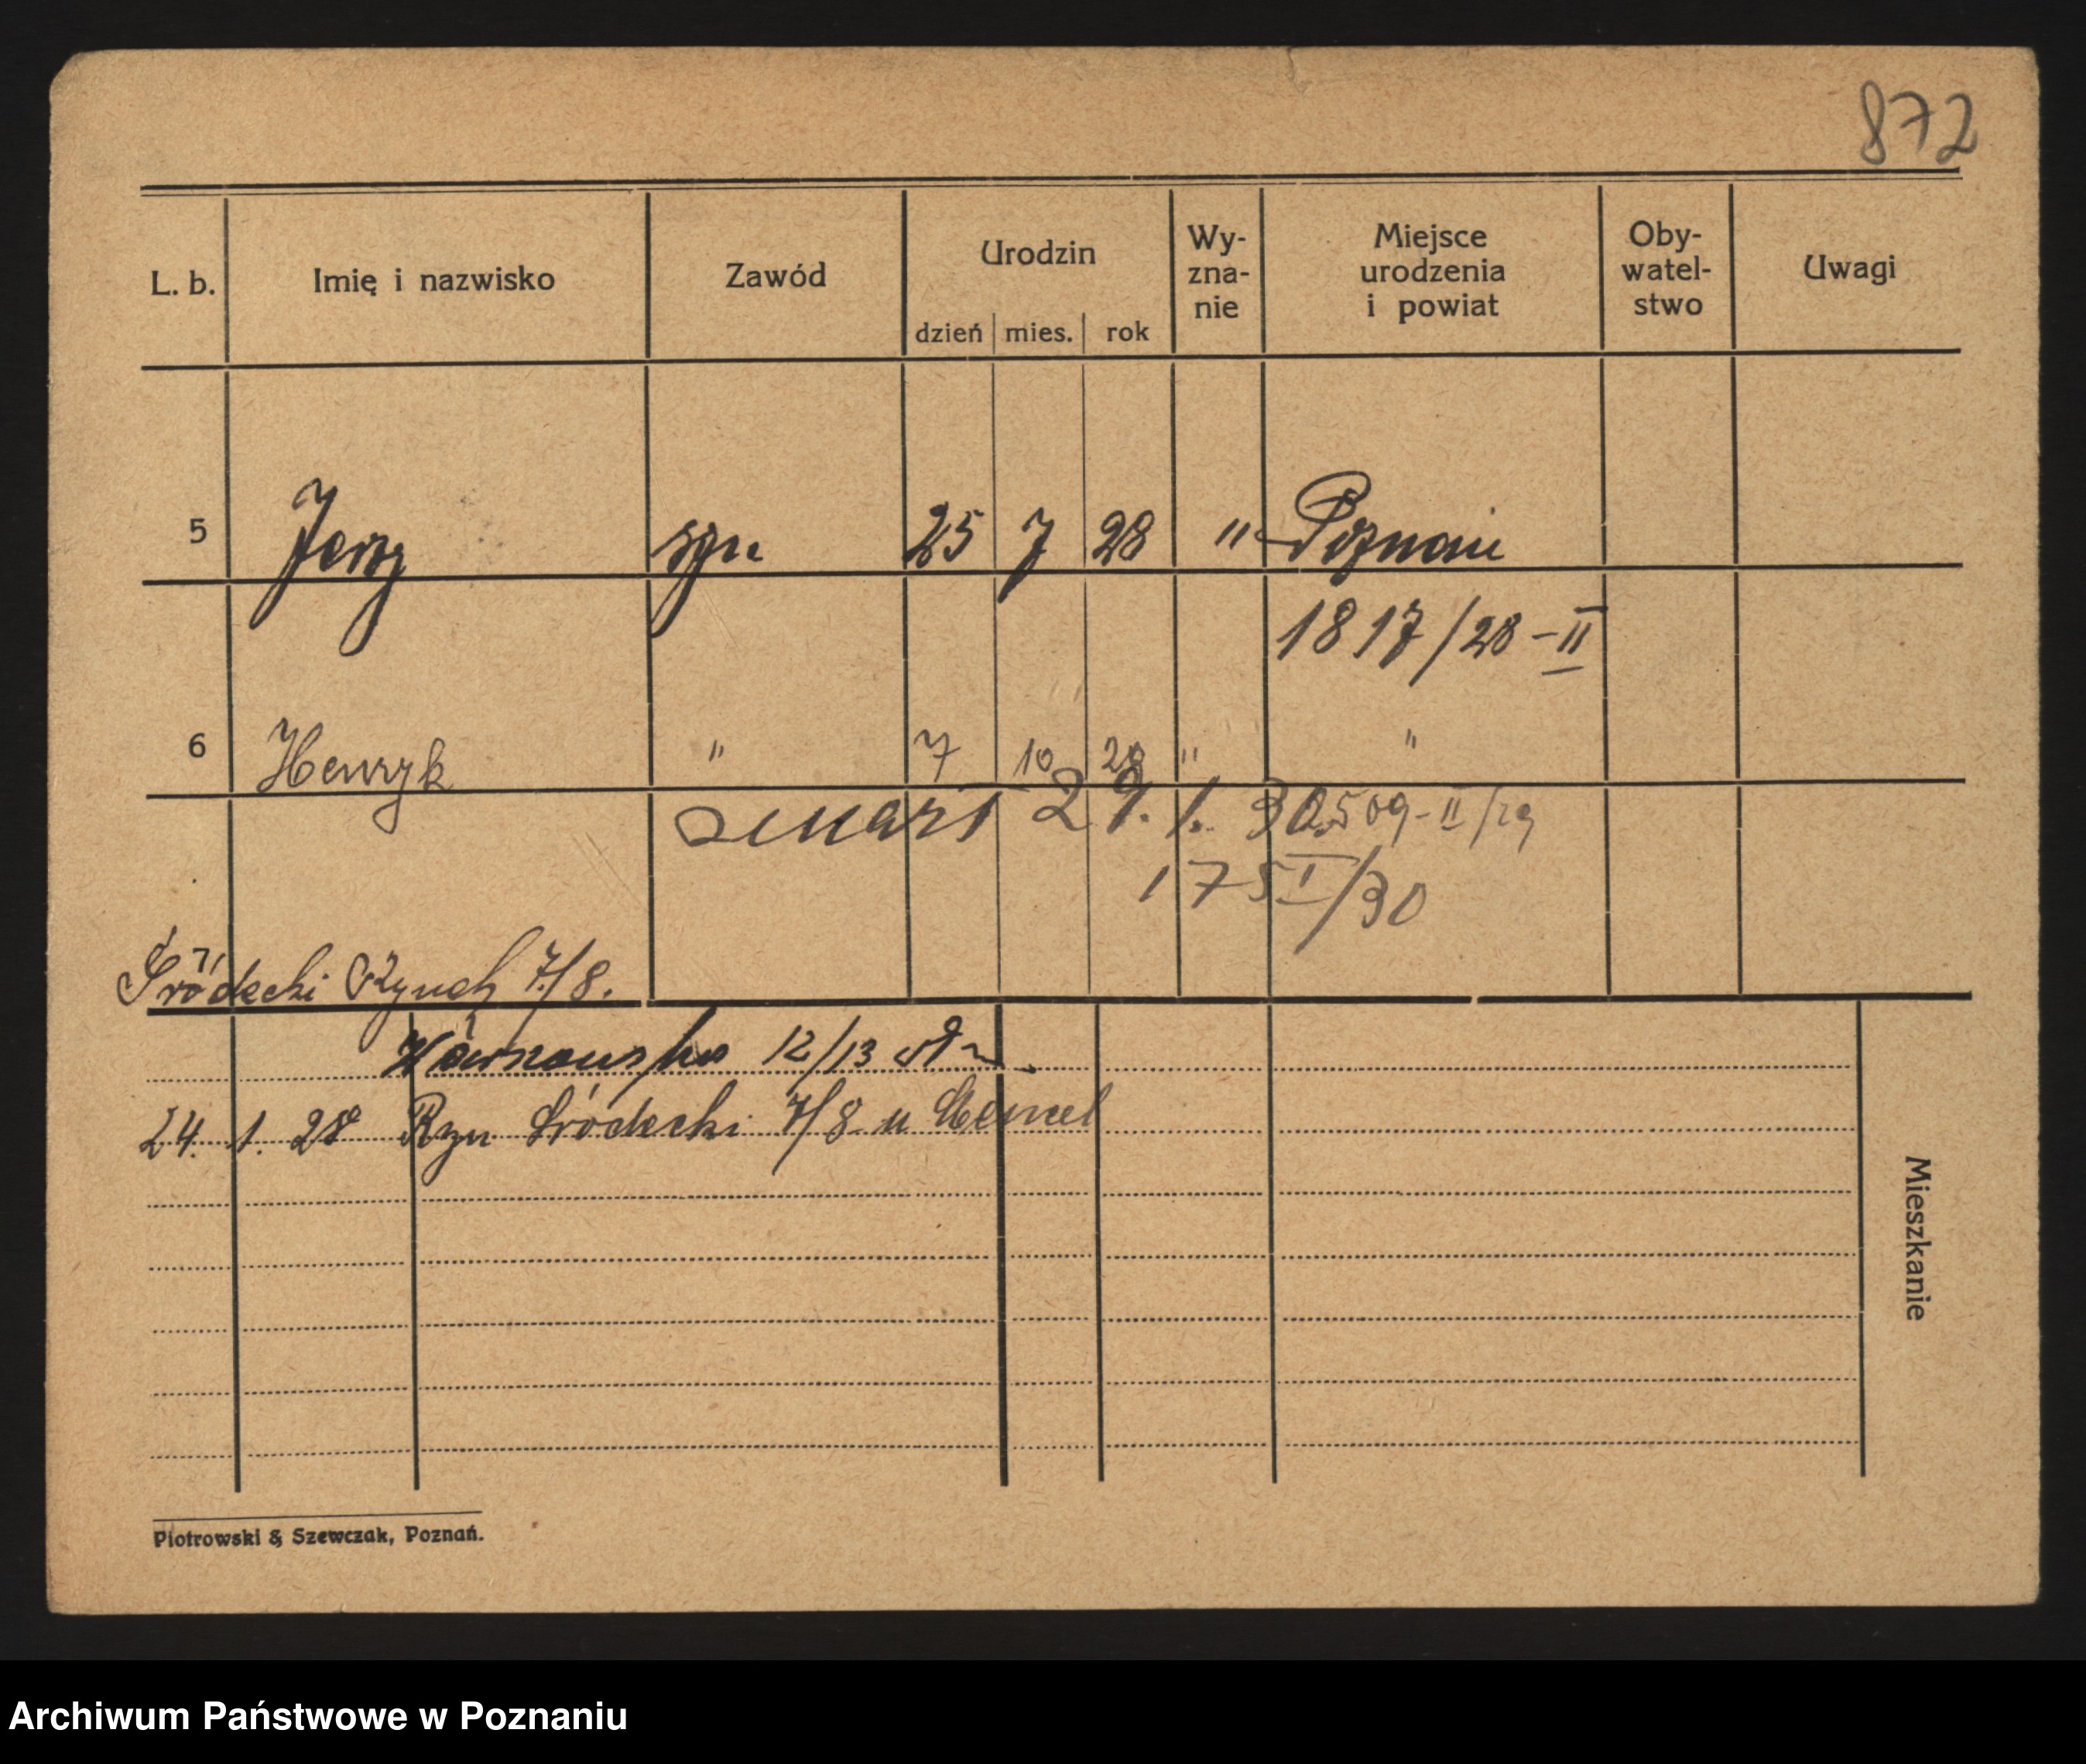 872
L. b. Imię i nazwisko Zawód Urodzin Wy-zna-nie Miejsce urodzenia i powiat Oby-watel-stwo Uwagi
dzień mies. rok
5 Jerzy syn 25 7 28 " Poznań
1817/28-II
6 Henryk " 7 10 29 " "
zmarł 29. 1. 30 509-II/29
175 I/30
Śródecki Rynek 7/8.
12/13
24. 1. 28 Ryn Śródecki 7/8 u
Mieszkanie
Piotrowski & Szewczak, Poznań.
Archiwum Państwowe w Poznaniu